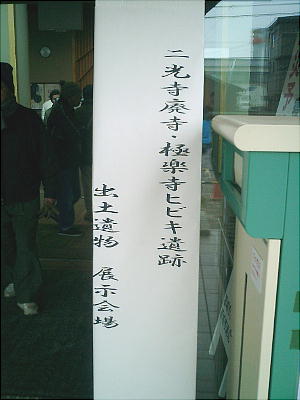 二光寺廃寺・極楽寺ヒビキ遺跡
出土遺物 展示会場